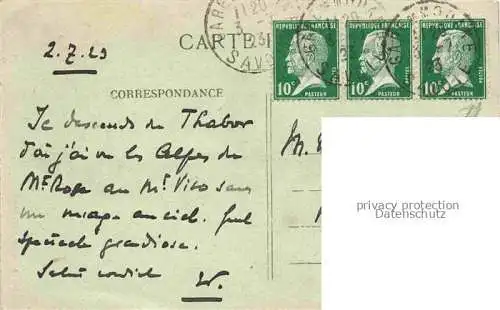 CARTE
2.7.23
REPUBLIQUE FRANÇAISE REPUBLIQUE FRANÇAISE REPUBLIQUE FRANÇAISE
POSTES
10c PASTEUR 10c PASTEUR 10c PASTEUR
SAVOIE
CORRESPONDANCE
Je descends du Thabor
d'où j'ai vu les Alpes du
Mt Rose au Mt Viso sans
un nuage au ciel. Quel
spectacle grandiose.
Salut cordial
W.
M.
privacy protection
Datenschutz